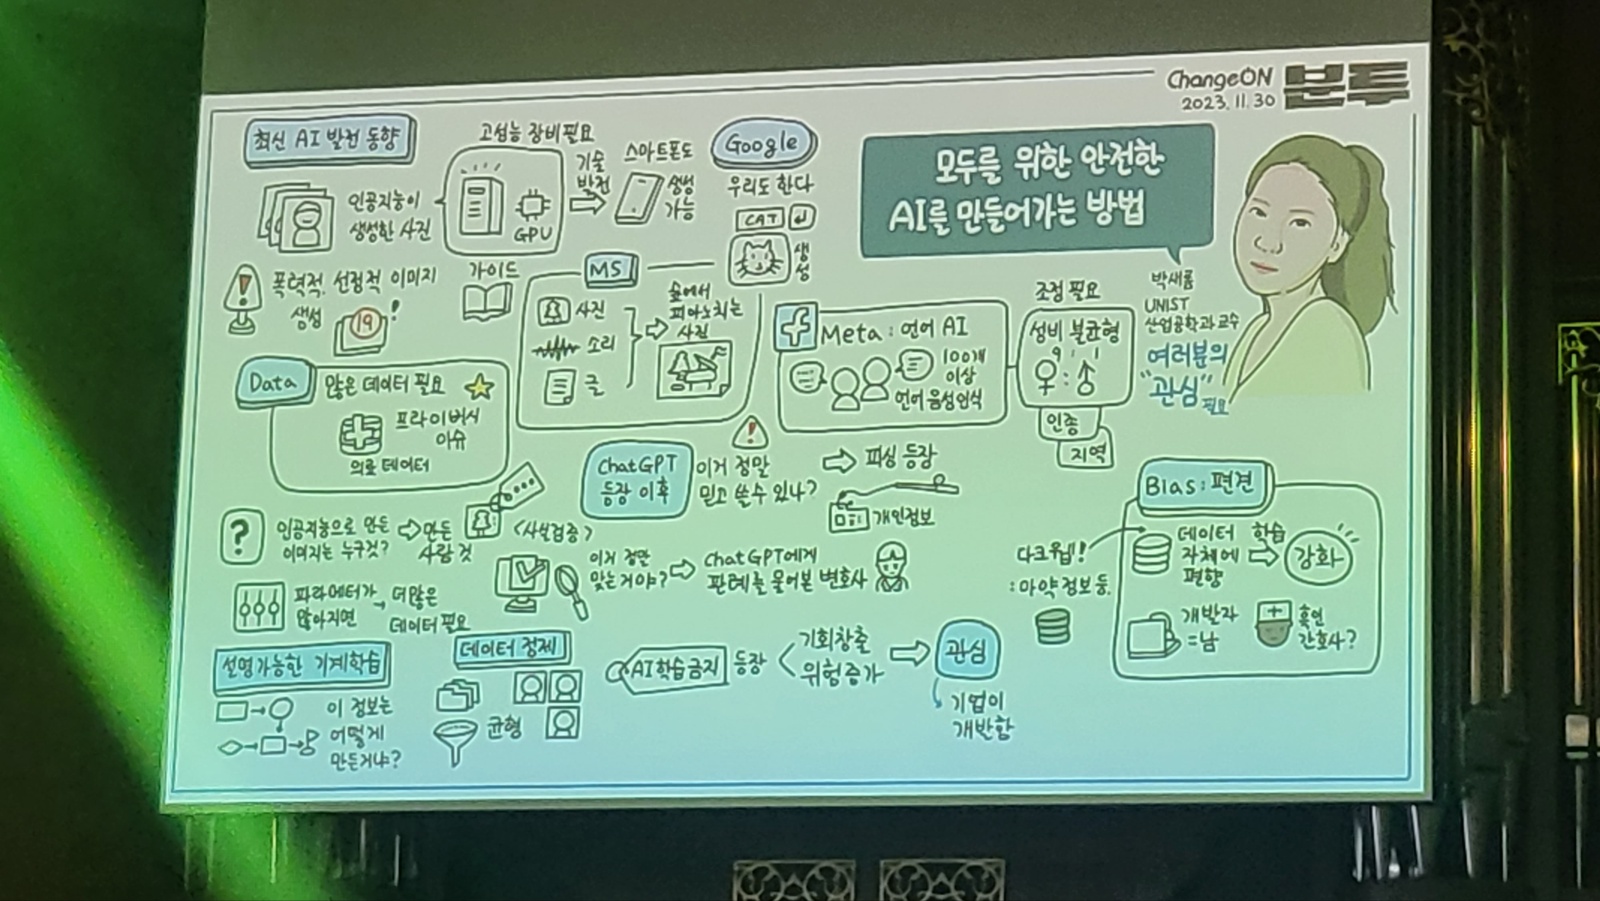 ChangeON
2023.11.30
분투
모두를 위한 안전한
AI를 만들어가는 방법
박새롬
UNIST
산업공학과 교수
여러분의
"관심"
필요
최신 AI 발전 동향
인공지능이
생성한 사진
고성능 장비 필요
GPU
기술
발전
스마트폰도
생성
가능
Google
우리도 한다
CAT
생
성
폭력적, 선정적 이미지
생성
19
!
가이드
MS
사진
소리
글
숲에서
피아노 치는
사진
Meta : 언어 AI
100개
이상
언어 음성인식
조정 필요
성비 불균형
9 : 1
:
인종
지역
Data
많은 데이터 필요
프라이버시
이슈
의료 데이터
ChatGPT
등장 이후
이거 정말
믿고 쓸 수 있나?
피싱 등장
개인정보
?
인공지능으로 만든
이미지는 누구것?
만든
사람 것
<사실검증>
이거 정말
맞는거야?
ChatGPT에게
판례를 물어본 변호사
파라메터가
많아지면
더많은
데이터 필요
Bias : 편견
다크웹!
: 마약 정보 등.
데이터
자체에
편향
학습
강화
개발자
=남
흑인
간호사?
설명가능한 기계학습
이 정보는
어떻게
만든거냐?
데이터 정제
균형
AI 학습금지
등장
기회창출
위험증가
관심
기업이
개발함